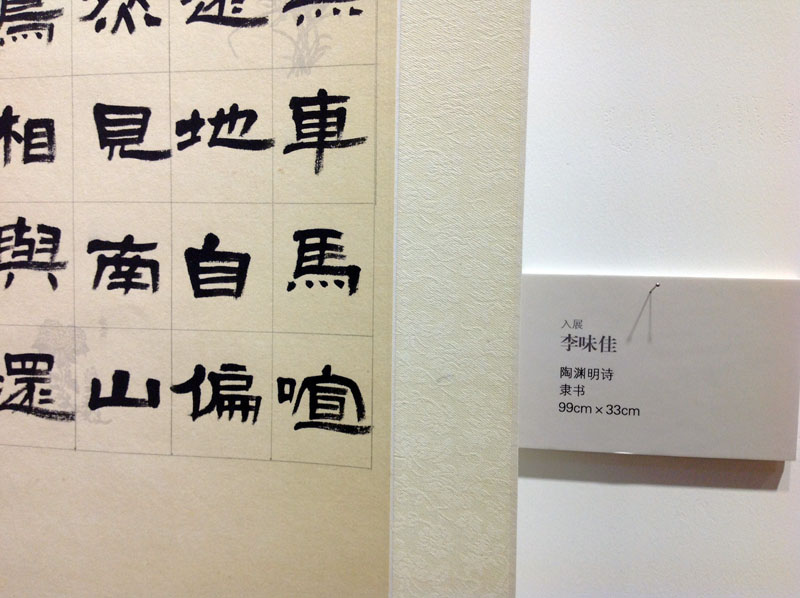 車馬喧
地自偏
見南山
相與還
入展
李味佳
陶渊明诗
隶书
99cm × 33cm